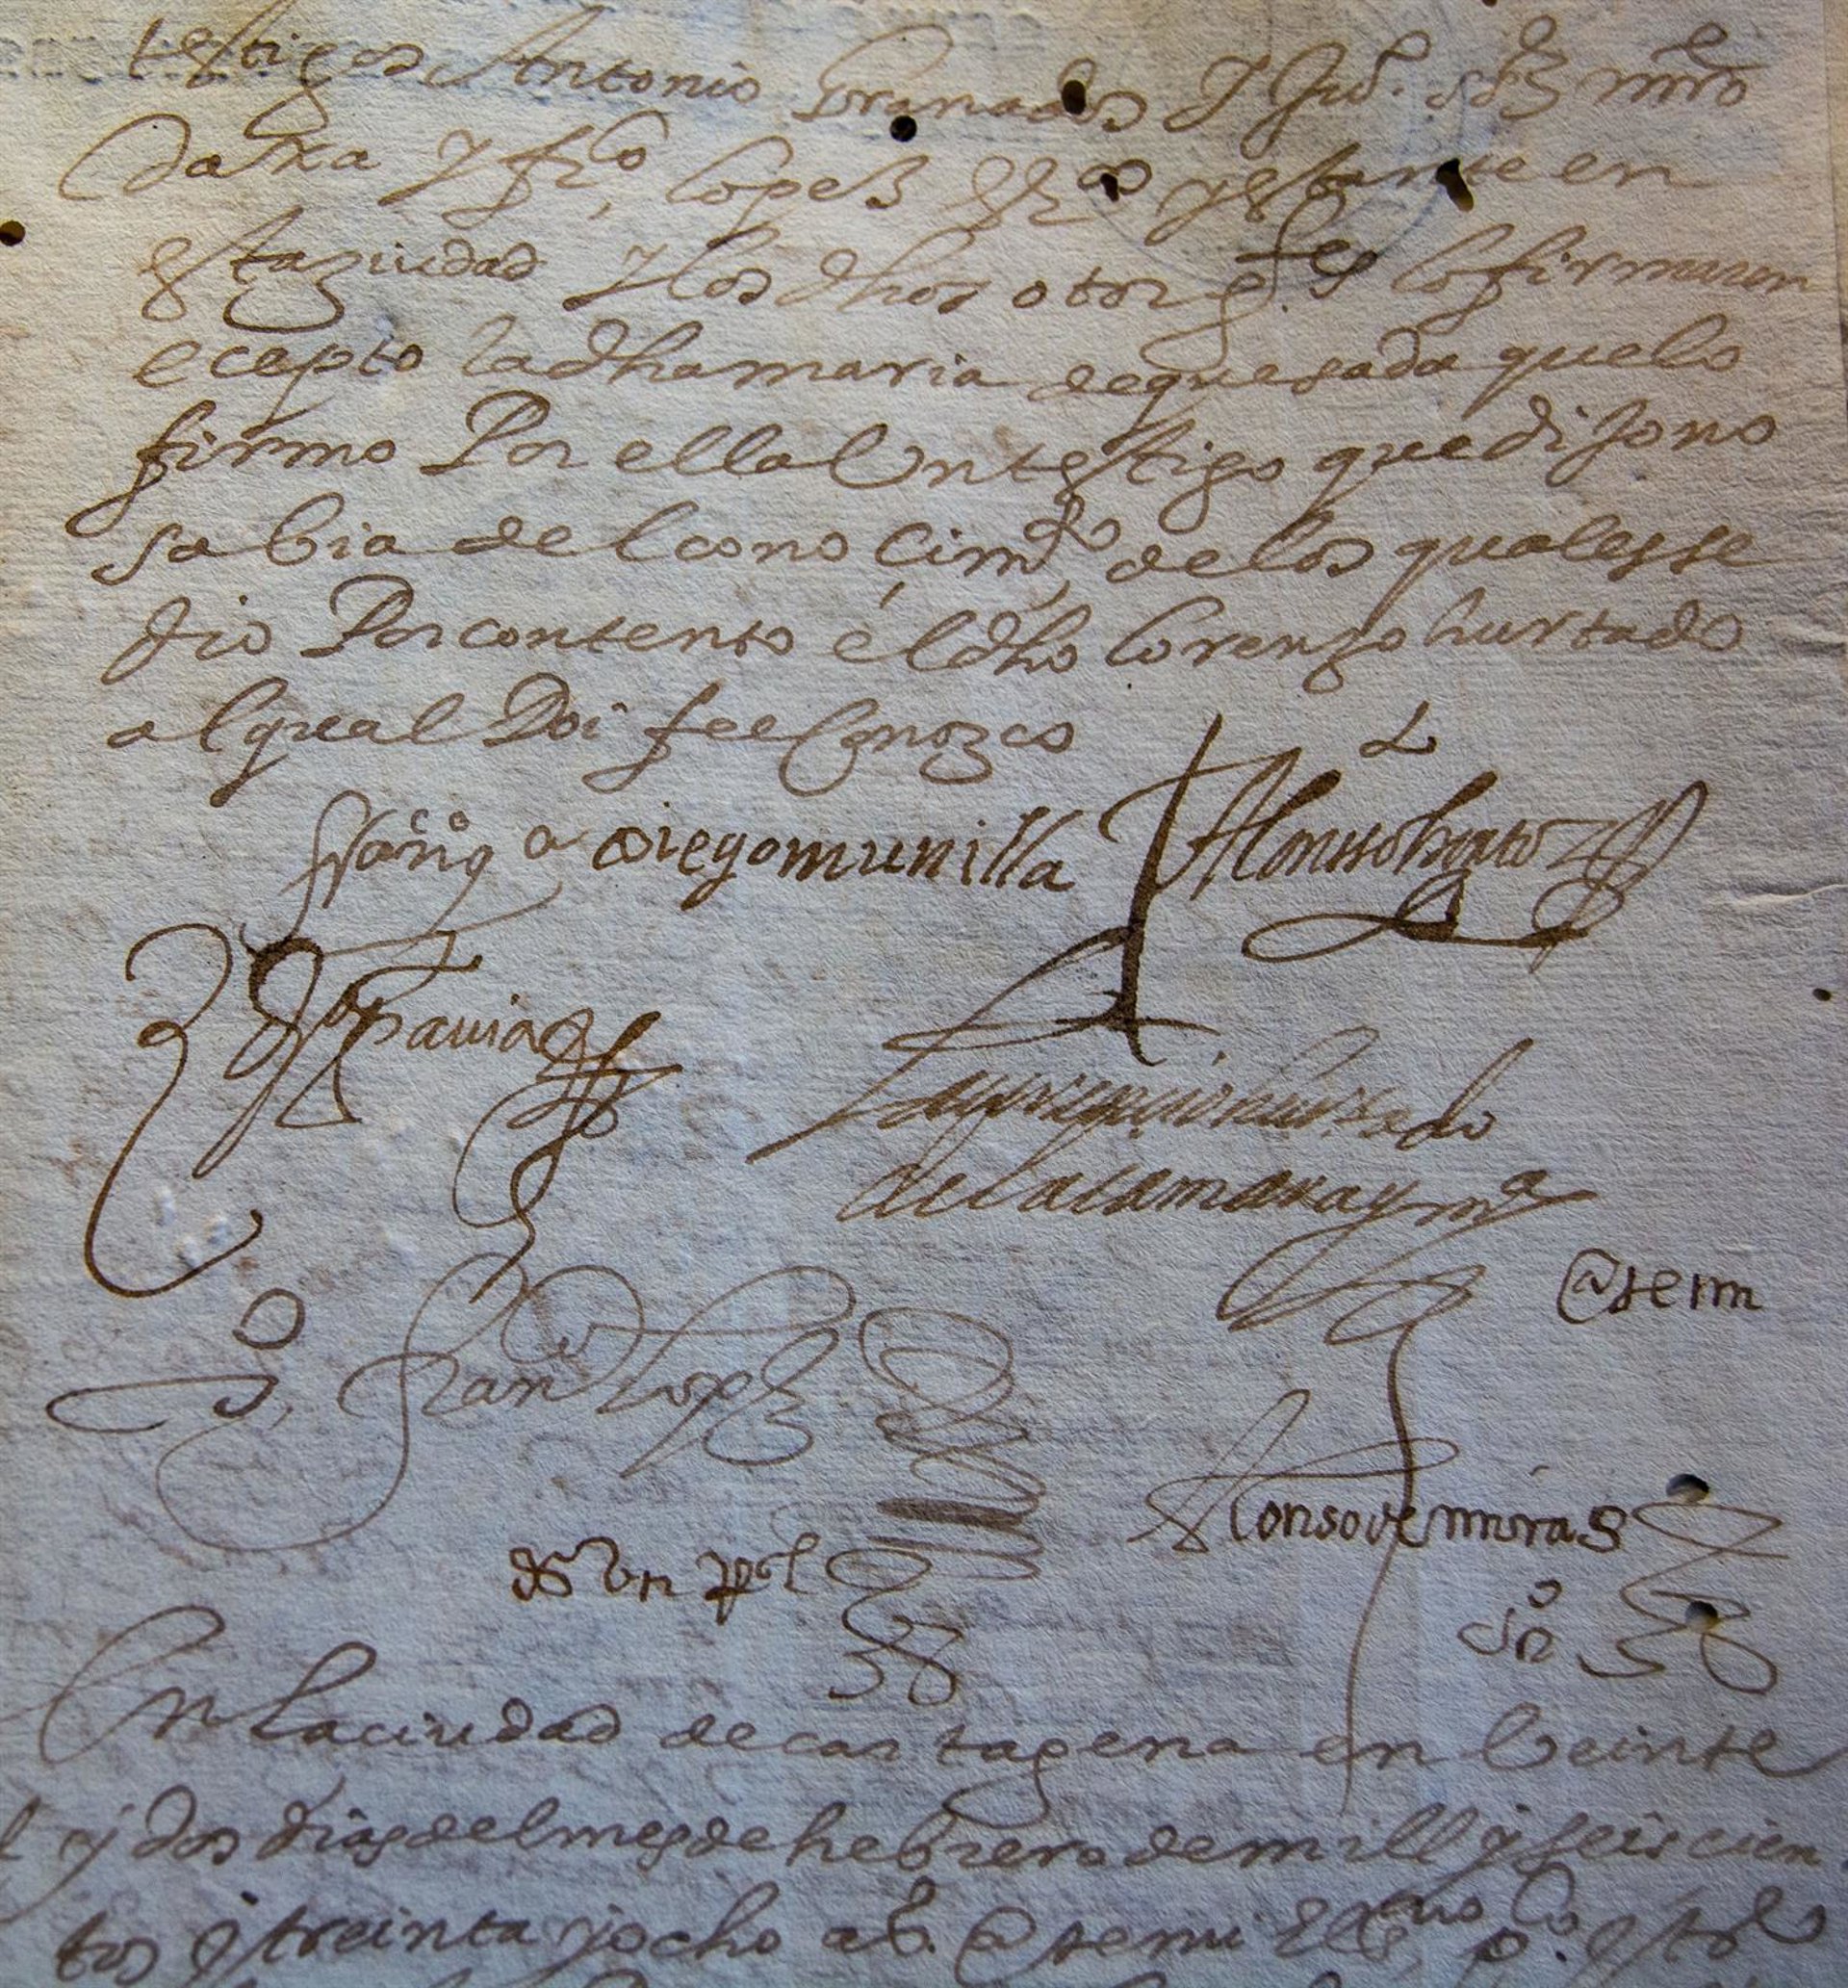 testigos Antonio Granados y Juº. mro
y frcº lopez y estante en
esta ziudad y los dhos otorgtes lo firmaron
ecepto la dha maria de quesada que lo
firmo Por ella Un testigo que dijo no
sabia del conoçimto de los quales se
dio Por contento el dho lorenzo hurtado
al qual Doi fee Conozco
diego munilla Alonso
pauia
laurencio hurtado
de la camara y mª
Ante mi
Franco lopez
Alonso de
ds Un rrl
En la ciudad de cartagena en beinte
y dos dias del mes de hebrero de mill y seiscien
tos y treinta y ocho as. Ante mi el essno pco. y tsº